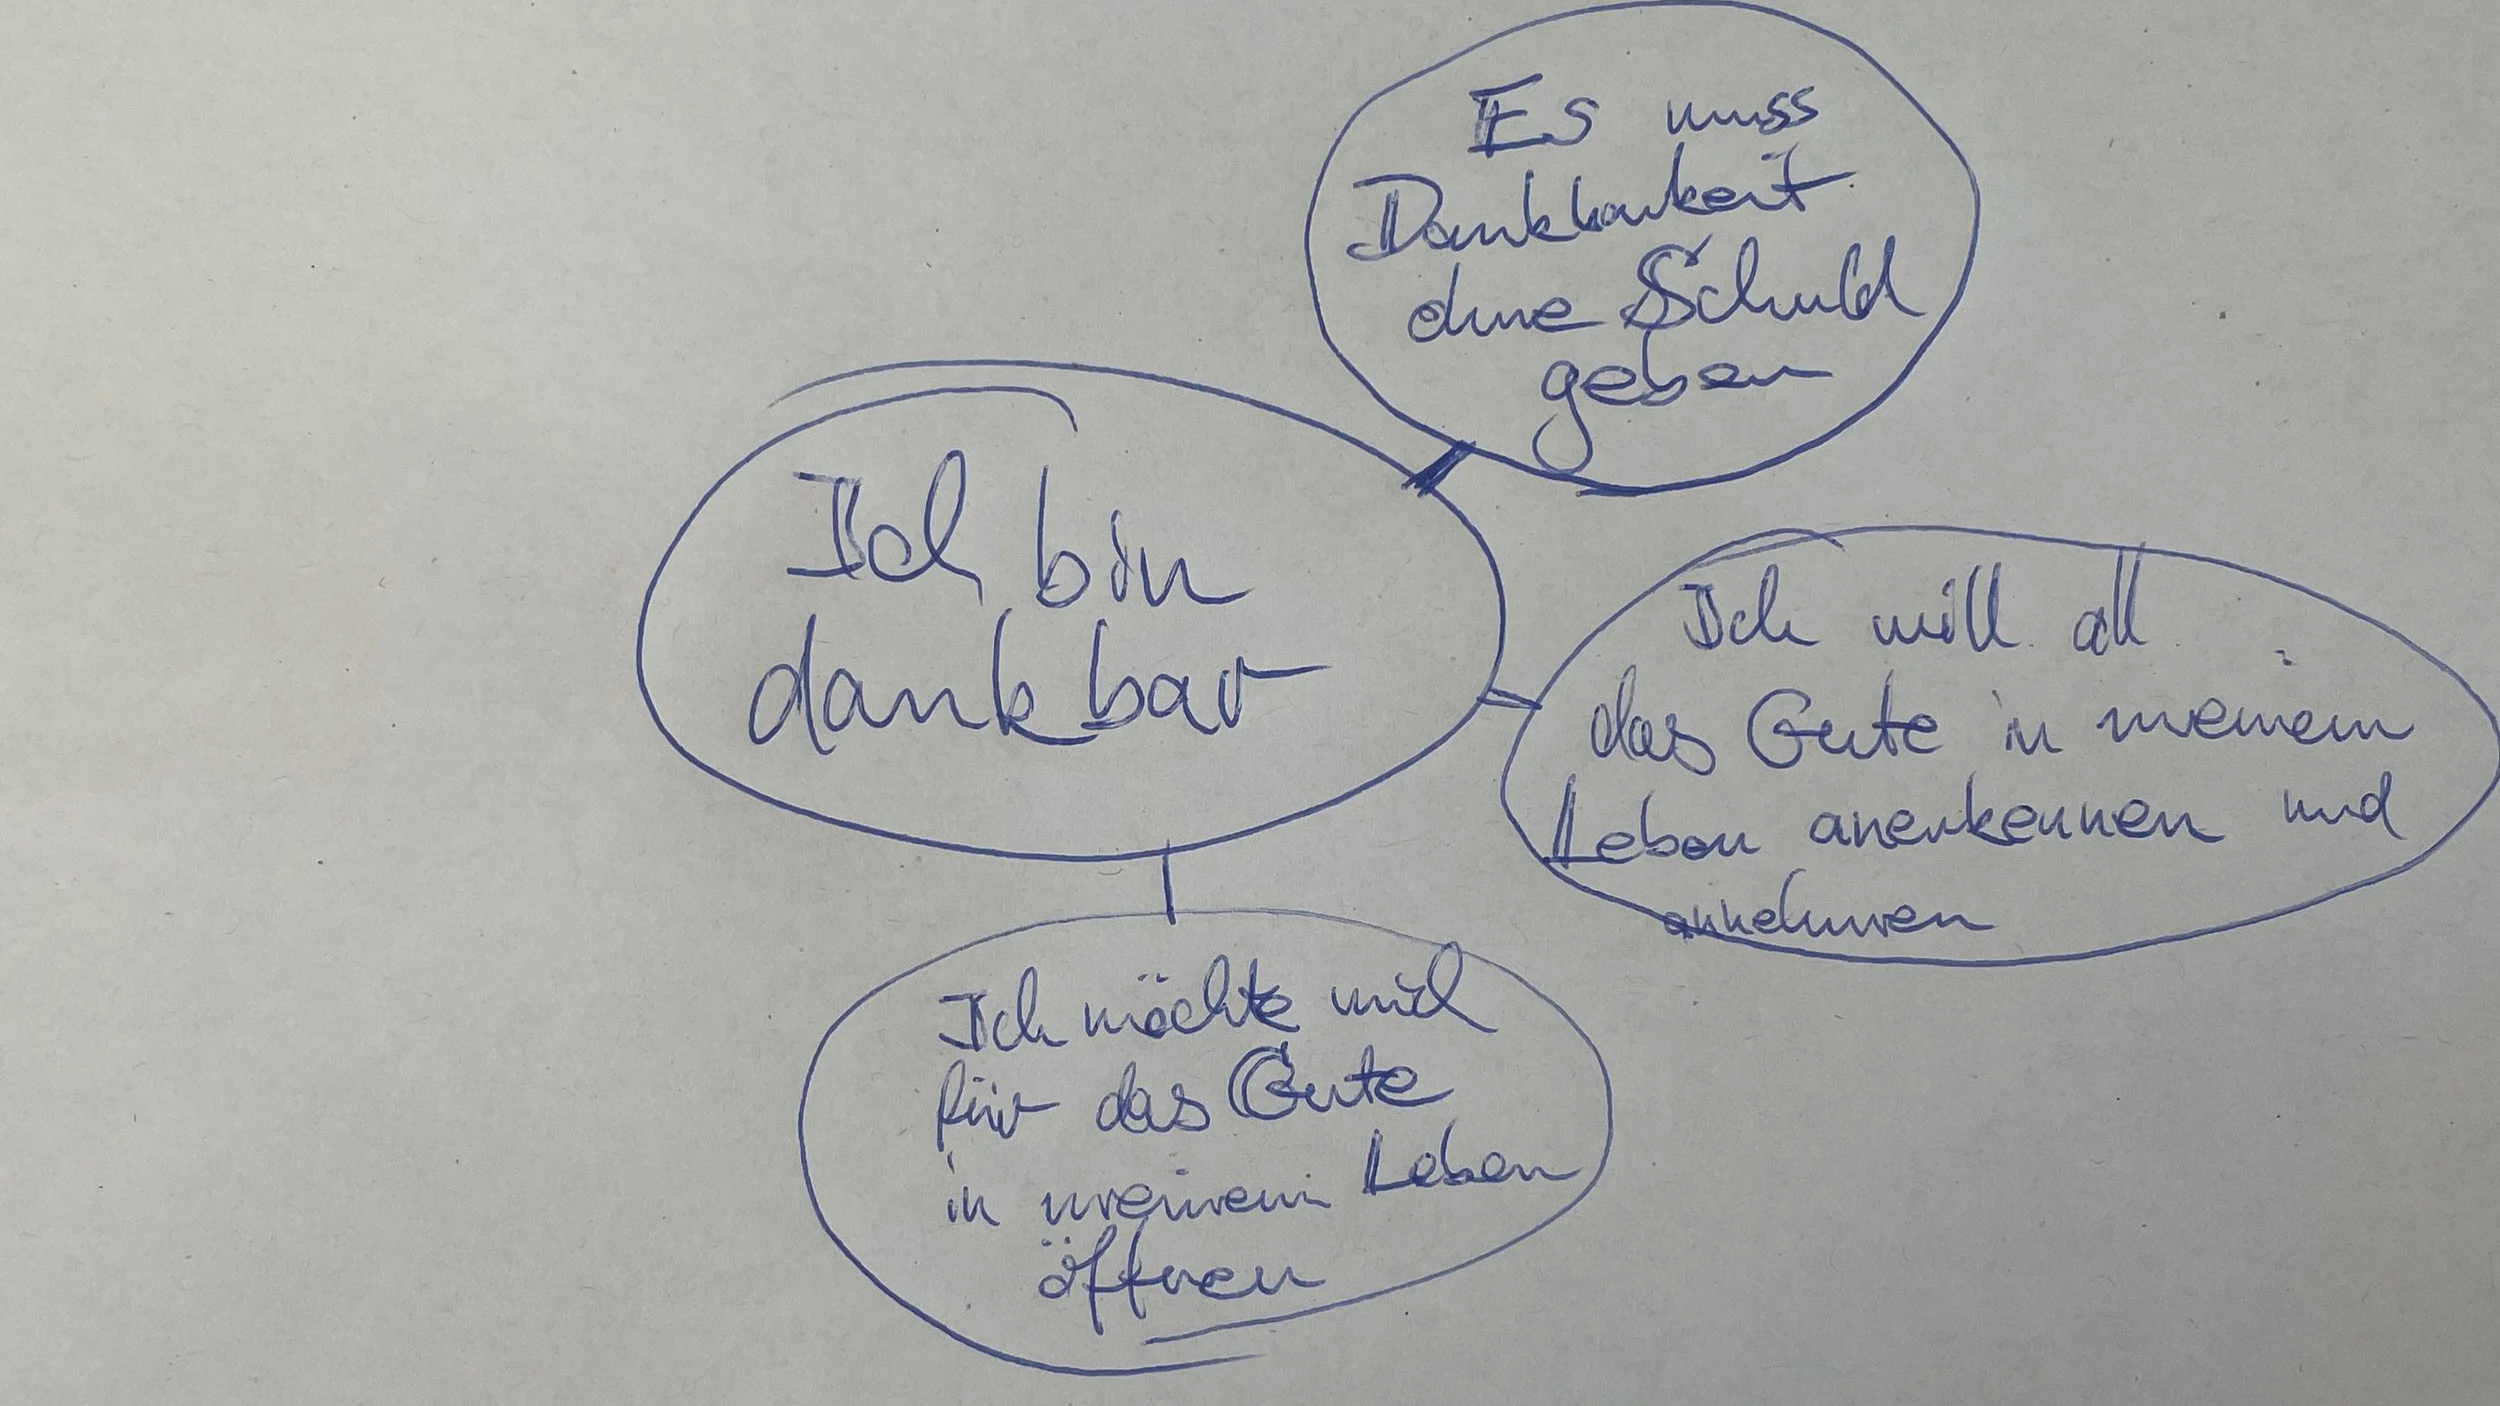 Es muss
Dankbarkeit
ohne Schuld
geben
Ich bin
dankbar
Ich will all
das Gute in meinem
Leben anerkennen und
annehmen
Ich möchte mich
für das Gute
in meinem Leben
öffnen